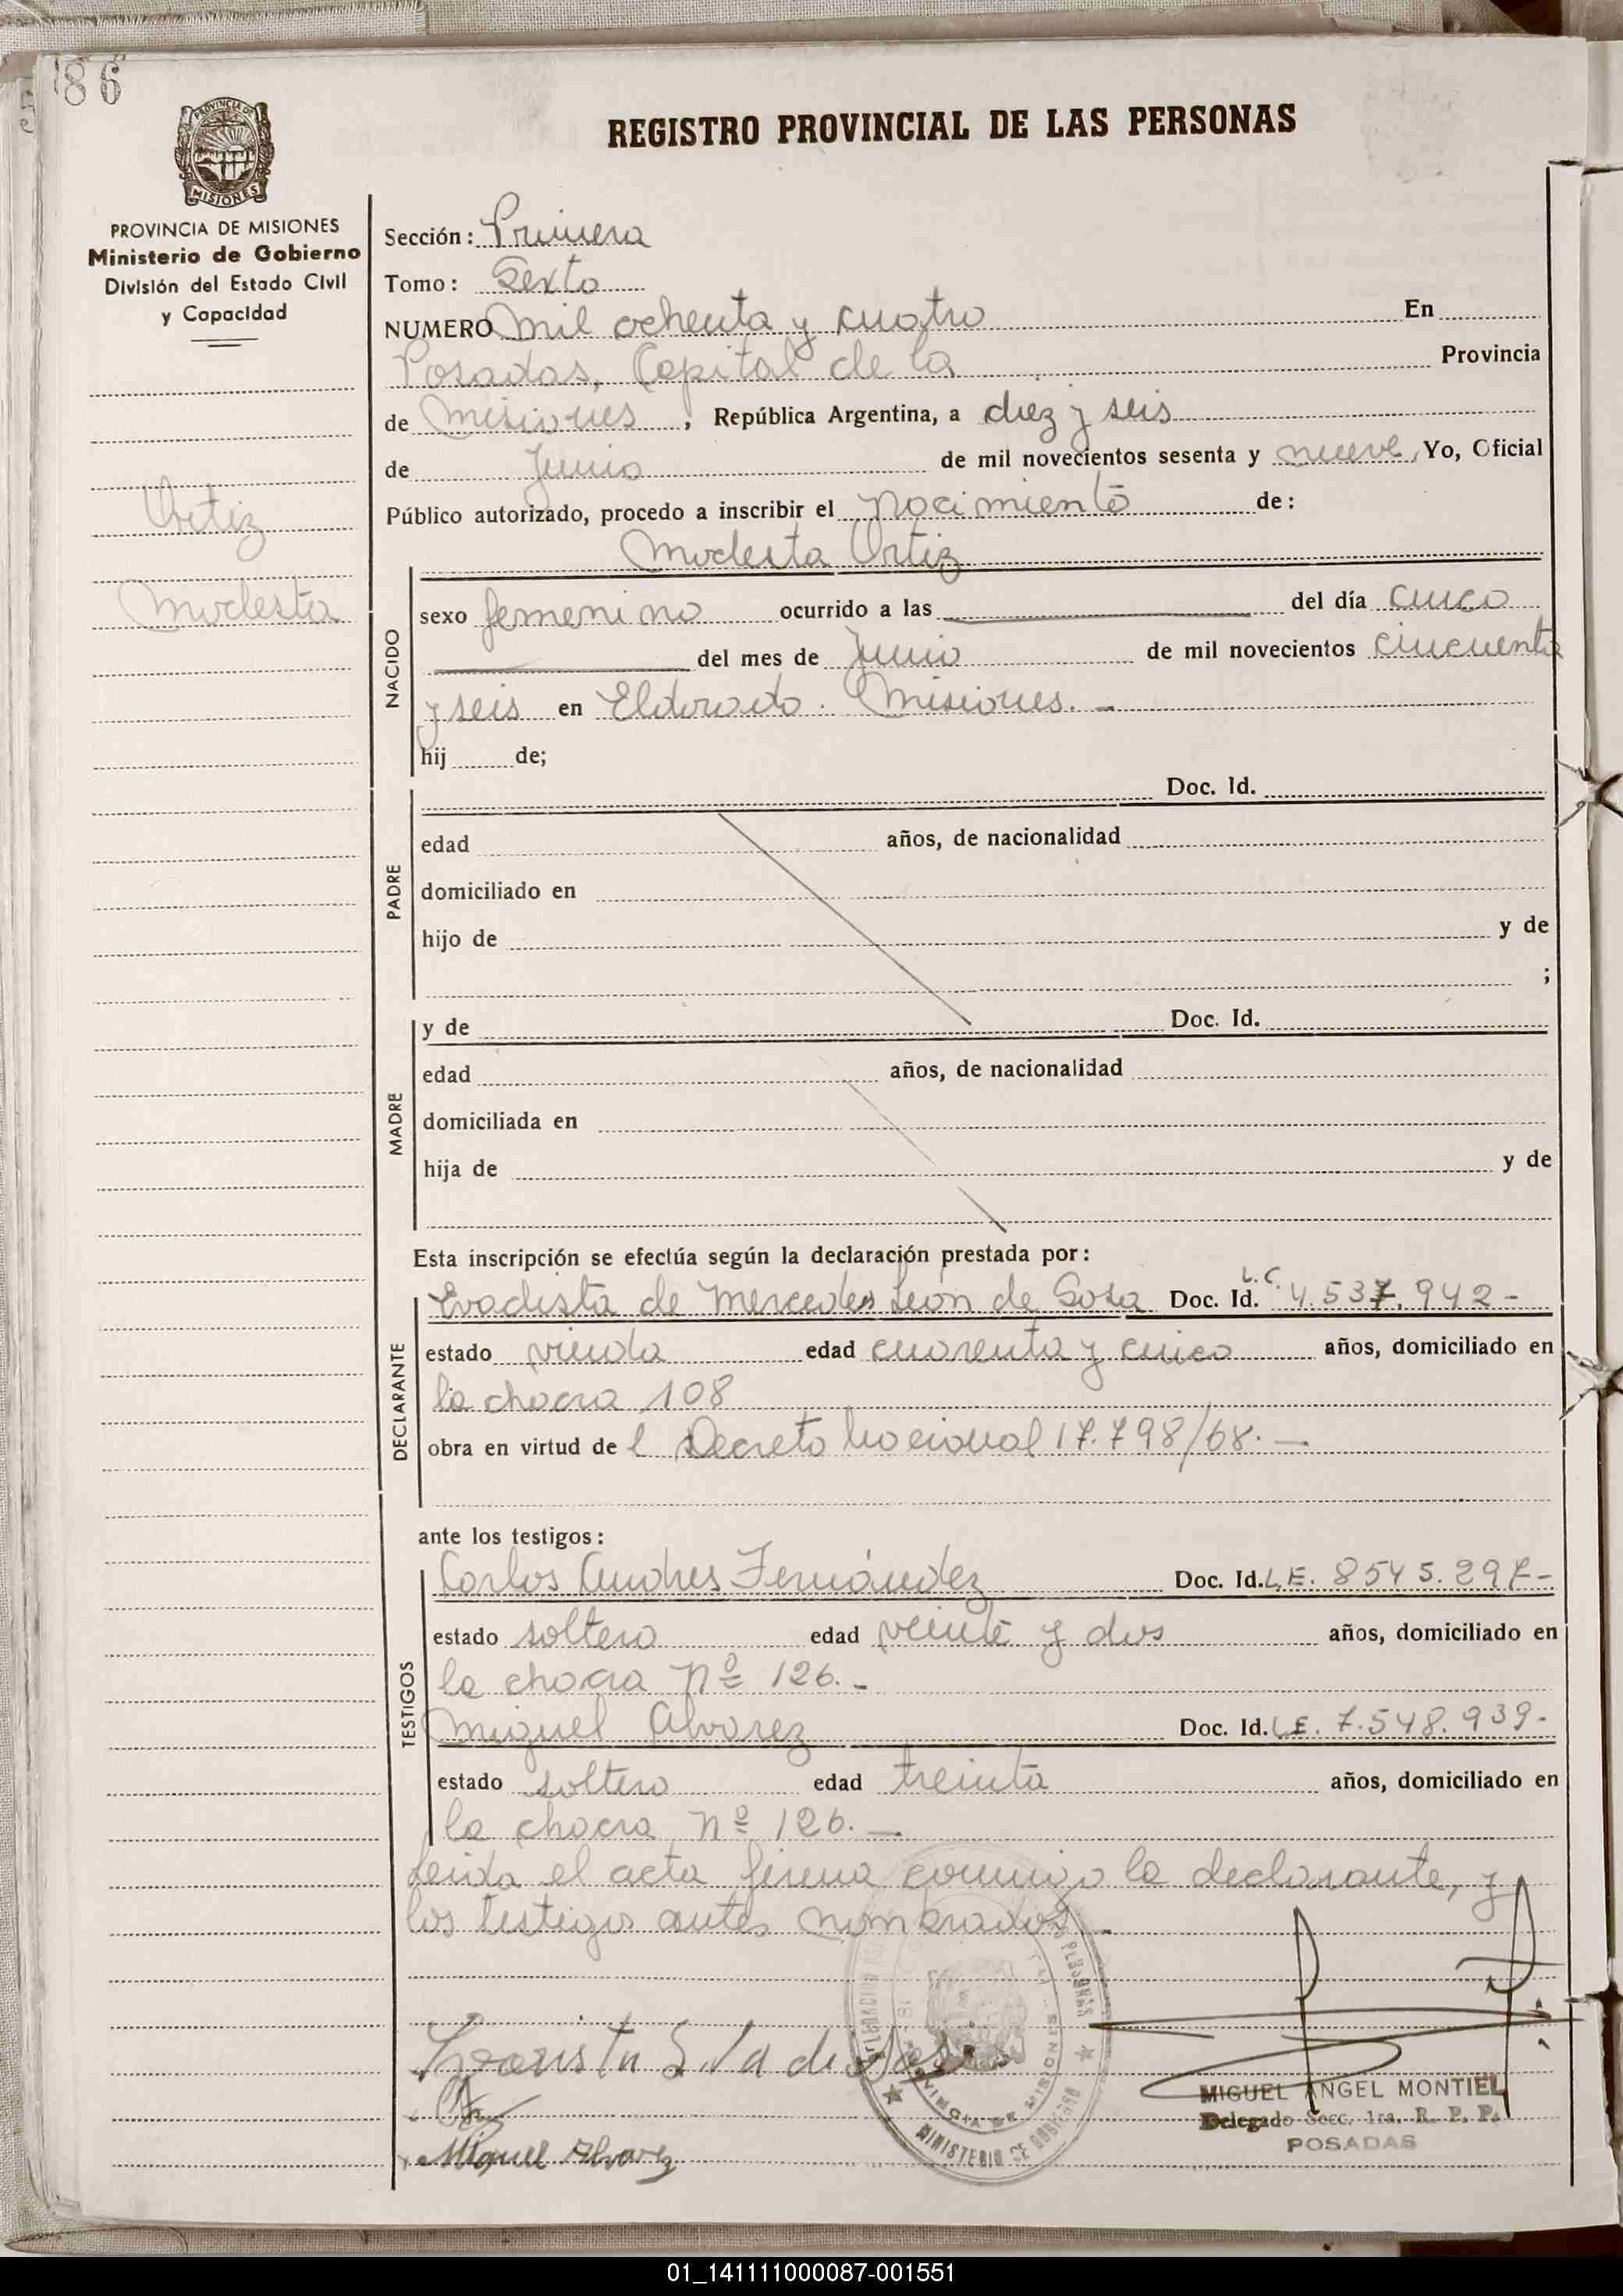 86
REGISTRO PROVINCIAL DE LAS PERSONAS
PROVINCIA DE
MISIONES
PROVINCIA DE MISIONES
Ministerio de Gobierno
División del Estado Civil
y Capacidad
Ortiz
Modesta
Sección: Primera
Tomo: Sexto
NUMERO mil ochenta y cuatro En
Posadas, Capital de la Provincia
de Misiones, República Argentina, a diez y seis
de Junio de mil novecientos sesenta y nueve, Yo, Oficial
Público autorizado, procedo a inscribir el nacimiento de:
Modesta Ortiz
NACIDO
sexo femenino ocurrido a las del día cinco
del mes de Junio de mil novecientos cincuenta
y seis en Eldorado. Misiones. -
hij de;
PADRE
Doc. Id.
edad años, de nacionalidad
domiciliado en
hijo de y de
;
MADRE
y de Doc. Id.
edad años, de nacionalidad
domiciliada en
hija de y de
Esta inscripción se efectúa según la declaración prestada por:
DECLARANTE
Evadista de Mercedes León de Sosa Doc. Id. L.C. 4.537.942-
estado viuda edad cuarenta y cinco años, domiciliado en
la chacra 108
obra en virtud de l Decreto Nacional 17.798/68. -
ante los testigos:
TESTIGOS
Carlos Andres Fernández Doc. Id. L.E. 8545.297-
estado soltero edad veinte y dos años, domiciliado en
la chacra Nº 126. -
Miguel Alvarez Doc. Id. L.E. 7.548.939-
estado soltero edad treinta años, domiciliado en
la chacra Nº 126. -
Leida el acta firma conmigo la declarante, y
los testigos antes nombrados. -
PROVINCIA DE MISIONES
MINISTERIO DE GOBIERNO
Miguel Alvarez
MIGUEL ANGEL MONTIEL
Delegado Secc. 1ra. R. P. P.
POSADAS
01_141111000087-001551